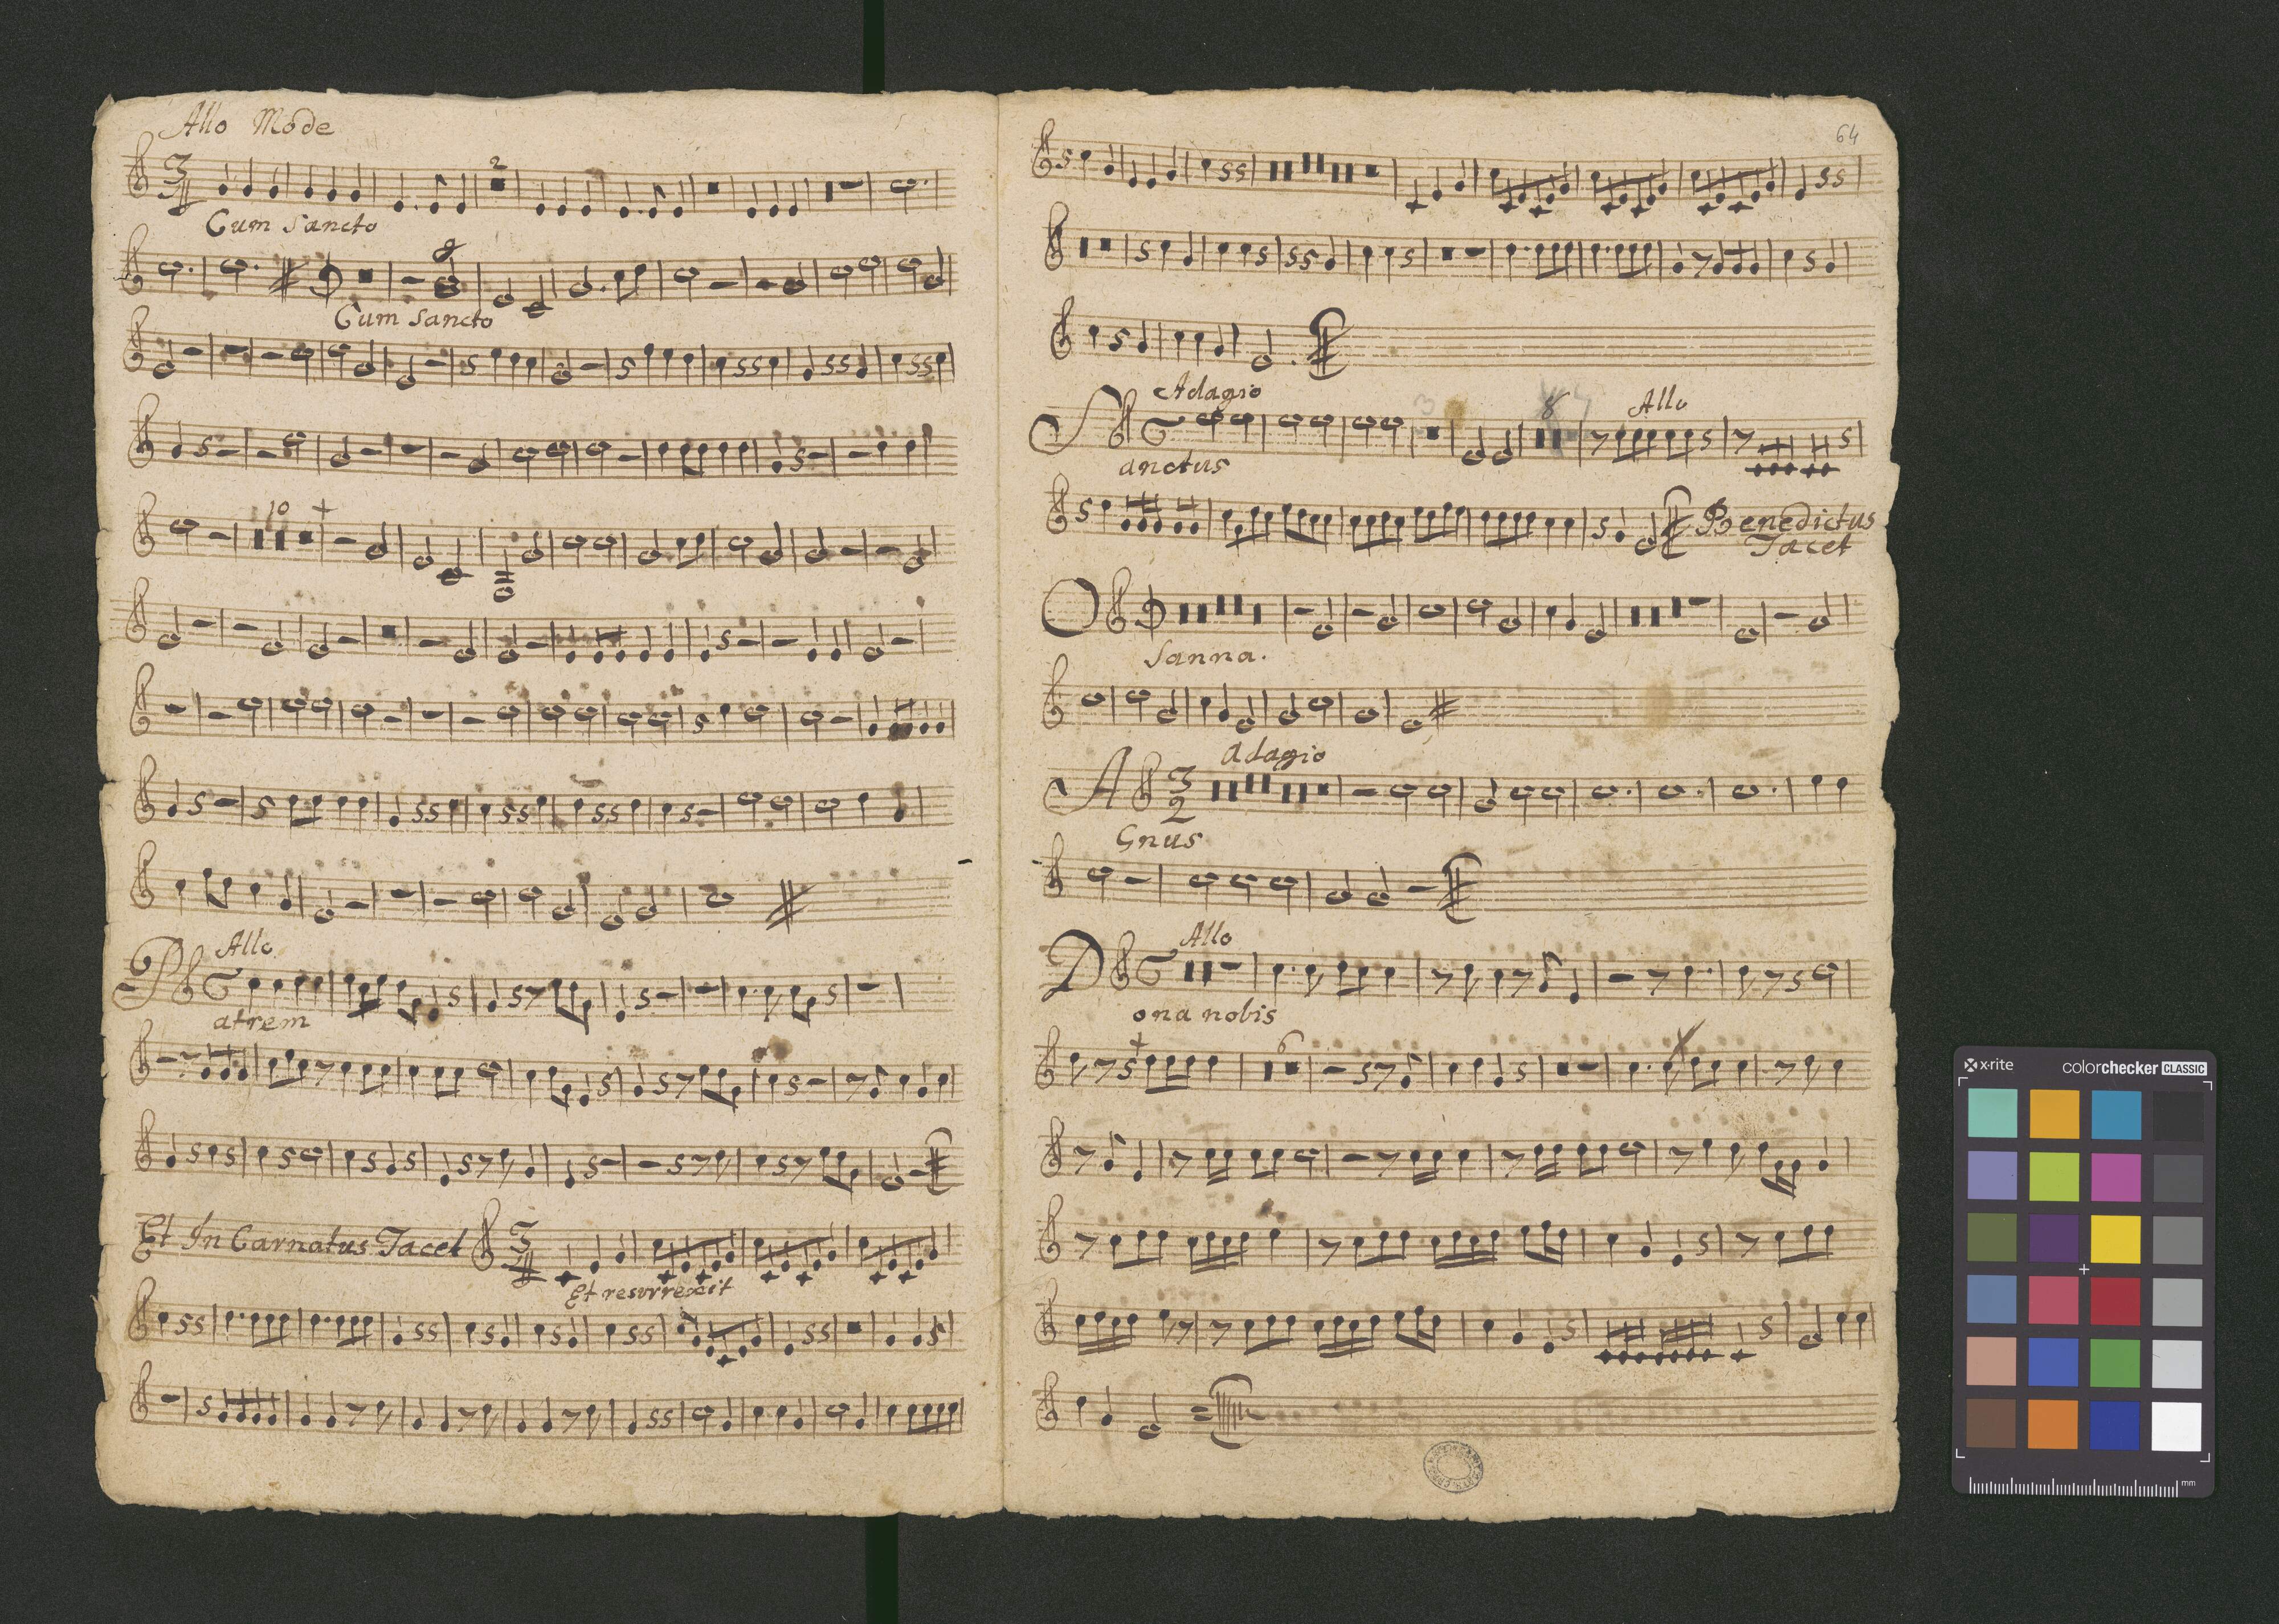 Allo Mode
3
4
2
Cum Sancto
Cum Sancto
10
Allo
Patrem
Et In Carnatus Tacet
3
4
Et resurrexit
64
Adagio
8
Allo
Sanctus
Benedictus
Tacet
OSanna.
Adagio
3
2
AGnus
Allo
Dona nobis
6
x-rite
colorchecker CLASSIC
mm